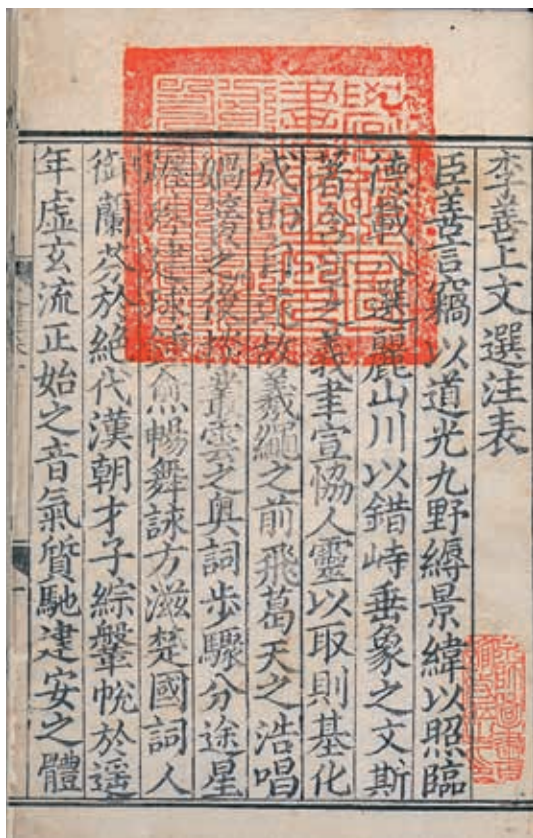 李善上文選注表
臣善言竊以道光九野縟景緯以照臨
德載八埏麗山川以錯峙垂象之文斯
著含章之義聿宣恊人靈以取則基化
成而自遠故羲繩之前飛葛天之浩唱
媧簧之後掞叢雲之奥詞步驟分途星
躔殊建球鍾愈暢舞詠方滋楚國詞人
御蘭芬於絶代漢朝才子綜鞶帨於遥
年虛玄流正始之音氣質馳建安之體
京師圖書館收藏之印